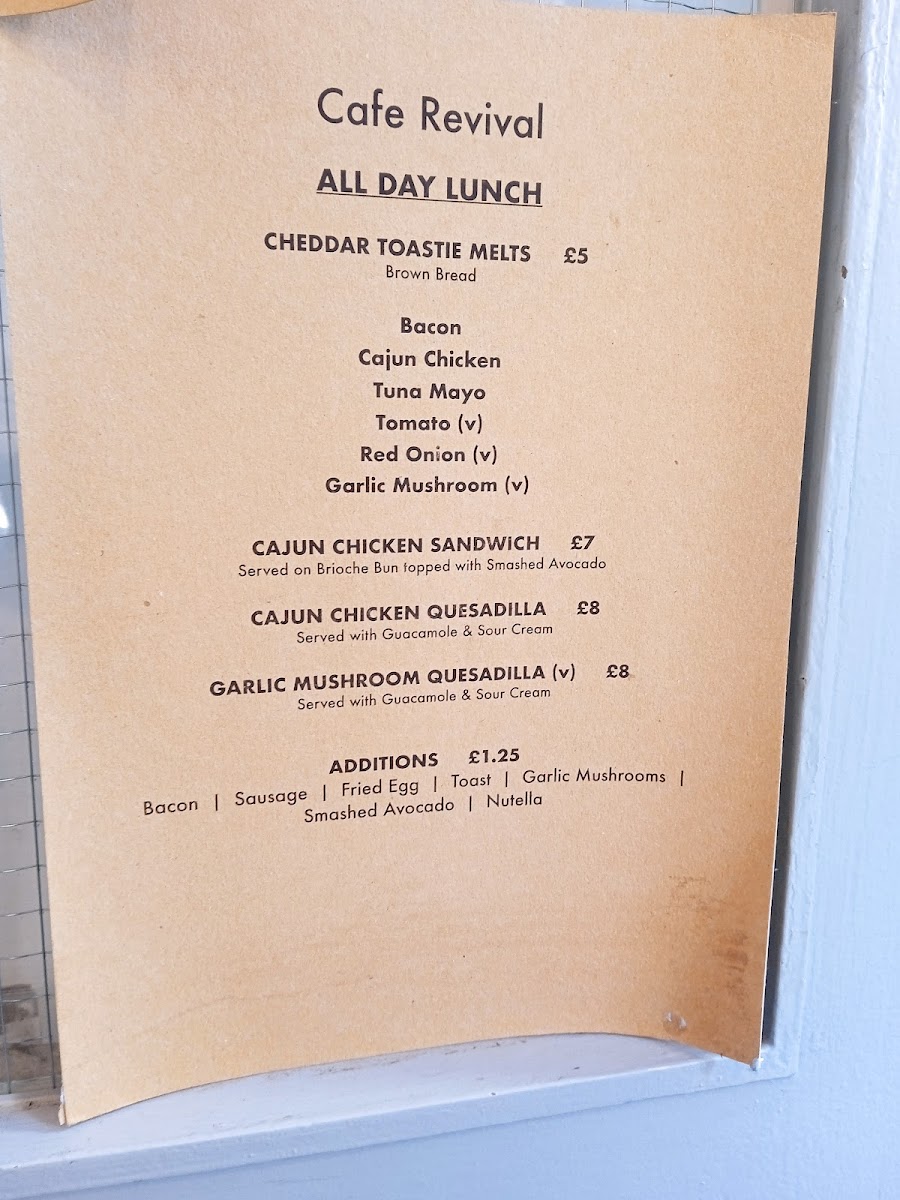 Cafe Revival
ALL DAY LUNCH
CHEDDAR TOASTIE MELTS £5
Brown Bread
Bacon
Cajun Chicken
Tuna Mayo
Tomato (v)
Red Onion (v)
Garlic Mushroom (v)
CAJUN CHICKEN SANDWiCH £7
Served on Brioche Bun topped with Smashed Avocado
CAJUN CHICKEN QUESADILLA £8
Served with Guacamole & Sour Cream
GARLIC MUSHROOM QUESADILLA (v) £8
Served with Guacamole & Sour Cream
ADDITIONS £1.25
Bacon | Sausage | Fried Egg | Toast | Garlic Mushrooms |
Smashed Avocado | Nutella